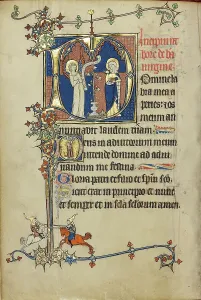 Incipiunt
hore de be
virgine
Domine la
bia mea a
peries: z os
meum an
nunciabit laudem tuam.
Deus in adiutorium meum
intende domine ad adiu
uandum me festina
Gloria patri et filio et spiri
sicut erat in principio et nunc
et semper et in secula seculorum amen